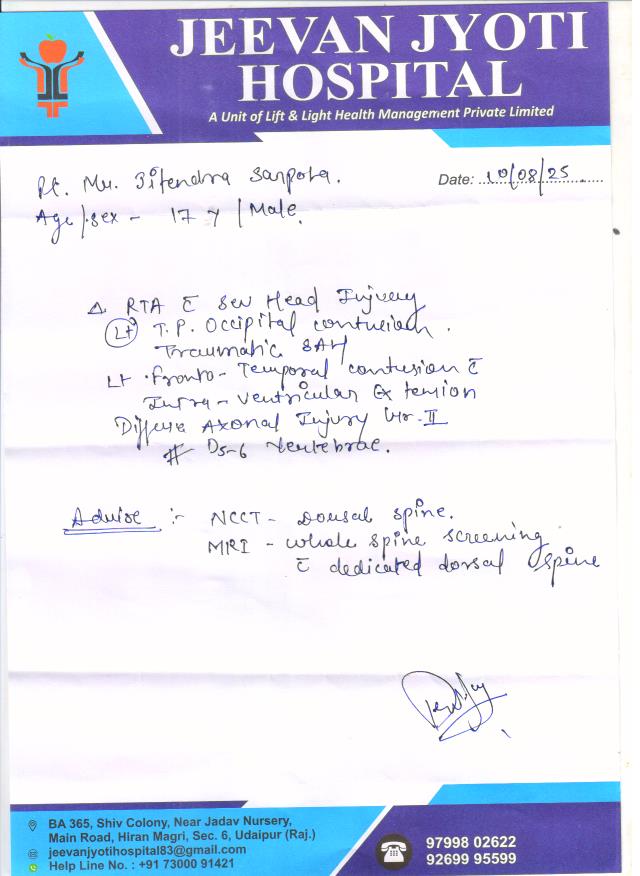 JEEVAN JYOTI
HOSPITAL
A Unit of Lift & Light Health Management Private Limited
Pt. Mr. Jitendra Sarpota.
Date: 10/08/25
Age/sex - 17 y / Male.
Δ RTA c̄ Sev Head Injury
(Lt) T.P. Occipital contusion.
Traumatic SAH
Lt. Fronto-Temporal contusion c̄
Intra-ventricular Extension
Diffuse Axonal Injury Gr. II
# D5-6 vertebrae.
Advise :- NCCT - Dorsal spine.
MRI - whole spine screening
c̄ dedicated dorsal spine
BA 365, Shiv Colony, Near Jadav Nursery,
Main Road, Hiran Magri, Sec. 6, Udaipur (Raj.)
jeevanjyotihospital83@gmail.com
Help Line No. : +91 73000 91421
97998 02622
92699 95599